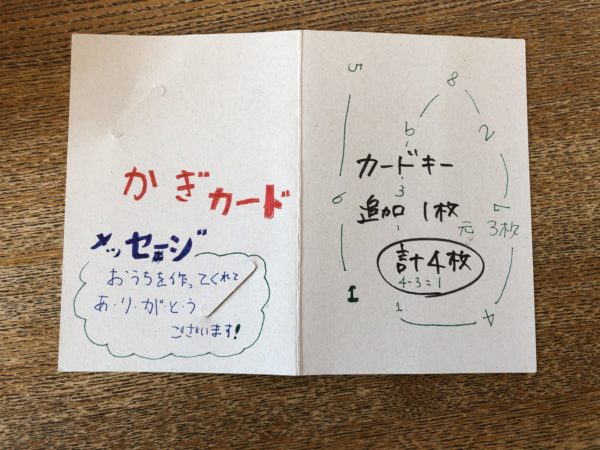 かぎカード
メッセージ
おうちを作ってくれて
あ・り・が・と・う
ございます!
5
6
1
8
6
2
カードキー
3
7
追加 1枚
元 3枚
計4枚
4-3=1
1
4